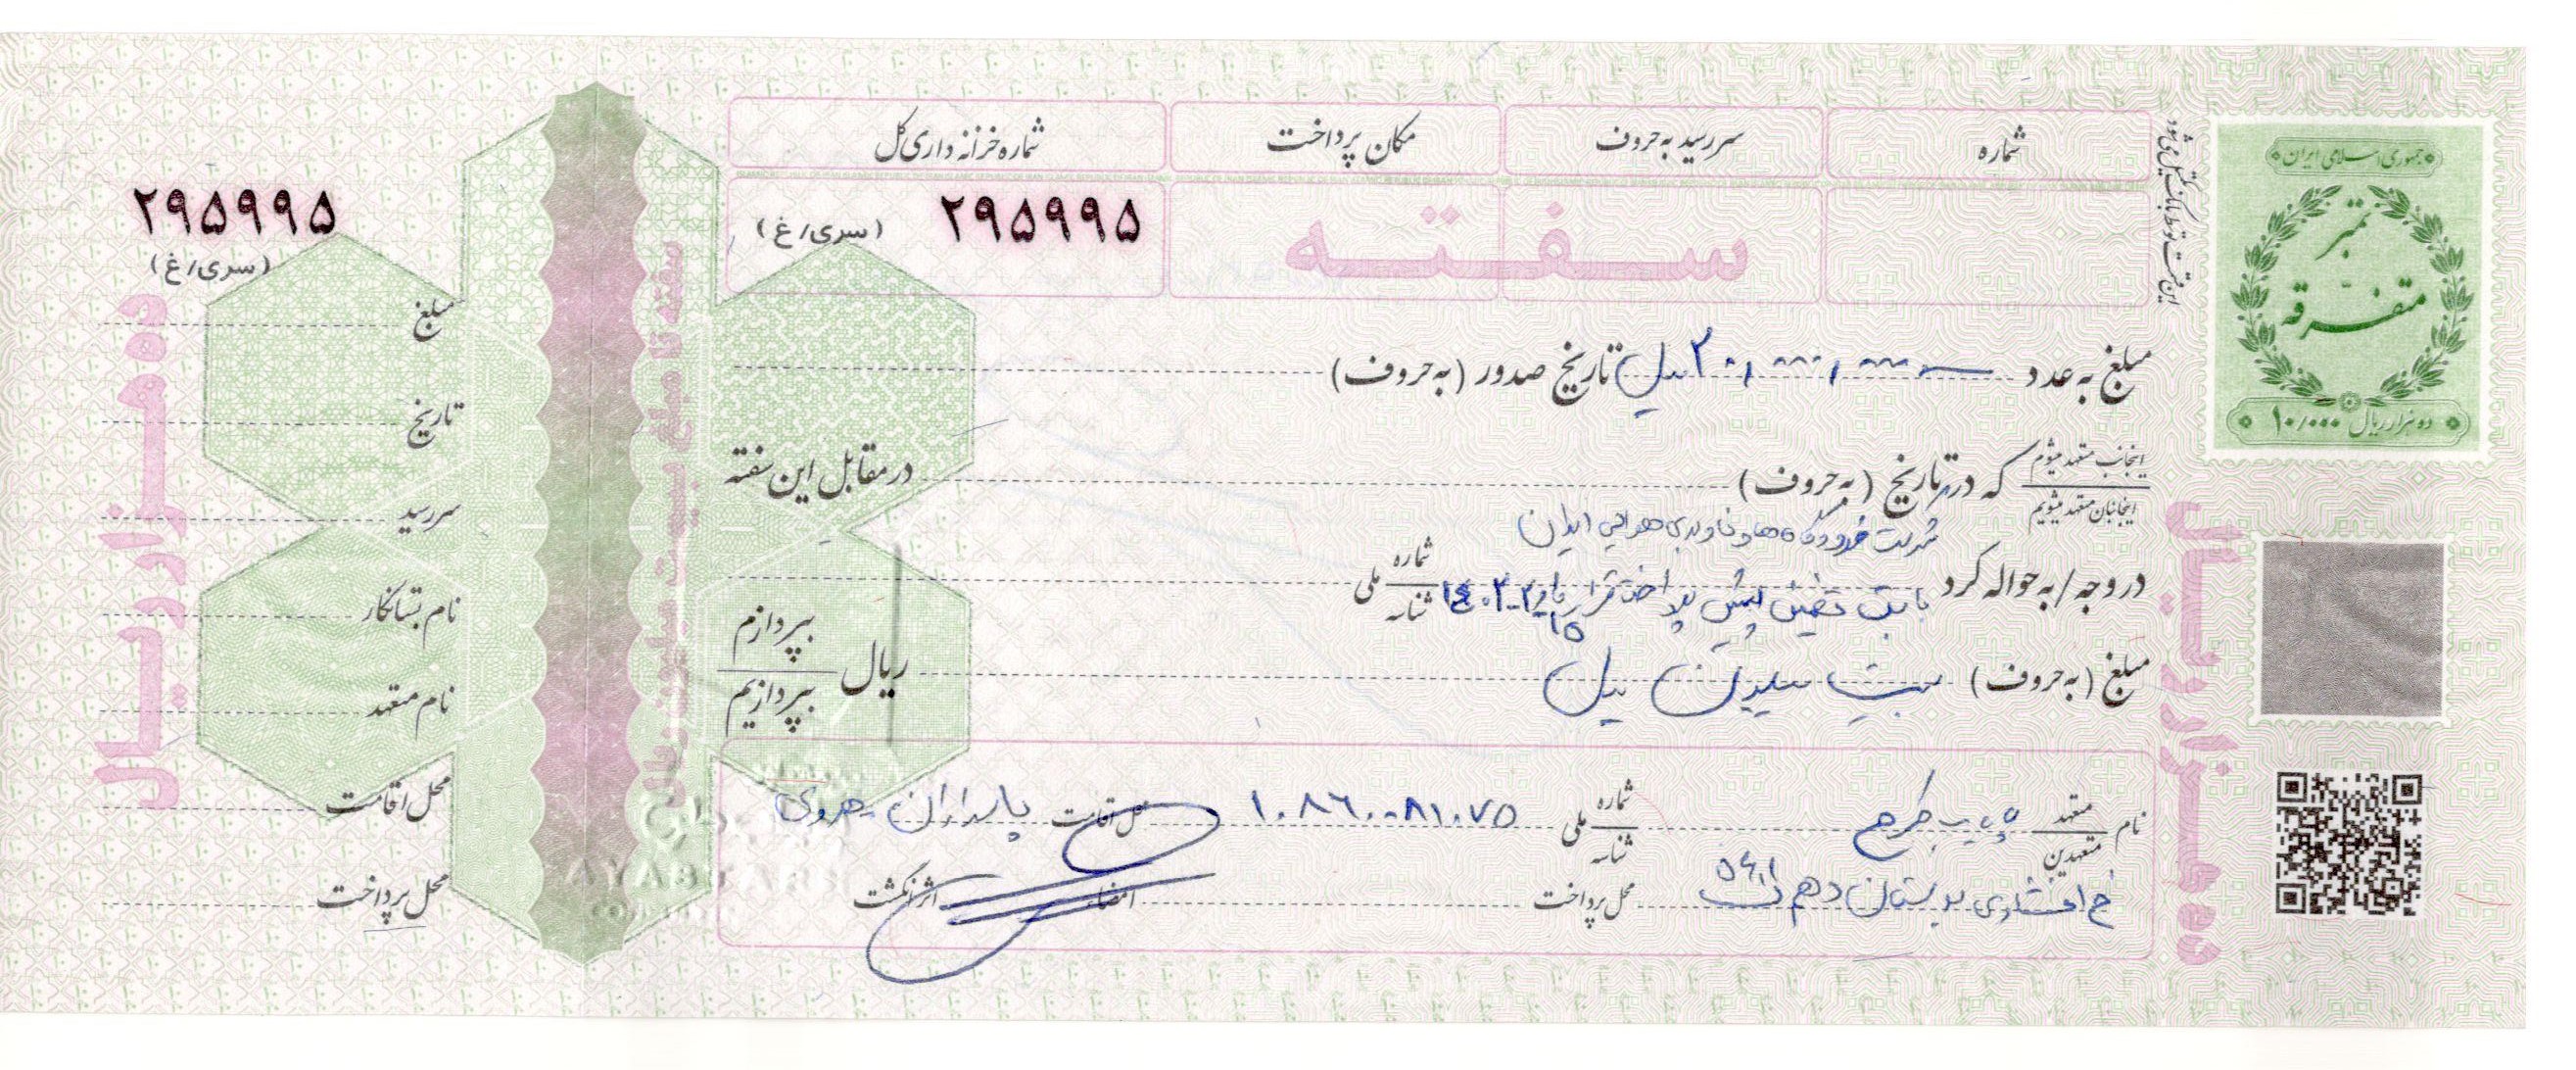 جمهوری اسلامی ایران
تمبر
متفرقه
ده هزار ریال ۱۰/۰۰۰
ده هزار ریال
شماره
سررسید به حروف
مکان پرداخت
شماره خزانه داری کل
سفته
۲۹۵۹۹۵ (سری/غ)
مبلغ به عدد ۲۰/۰۰۰/۰۰۰ ریال تاریخ صدور (به حروف)
اینجانب متعهد میشوم
اینجانبان متعهد میشویم
که در تاریخ (به حروف) در مقابل این سفته
شرکت فرودگاه‌ها و ناوبری هوایی ایران
در وجه / به حواله کرد بابت تضمین پیش پرداخت
شماره
شناسه
ملی
مبلغ (به حروف) بیست میلیون ریال ریال
بپردازم
بپردازیم
نام
متعهد
متعهدین
شماره
شناسه
ملی
۱۰۸۶۰۰۸۱۰۷۵ محل اقامت پاسداران هروی
بوستان دهم محل پرداخت
امضاء اثر انگشت
سفته تا مبلغ بیست میلیون ریال
۲۹۵۹۹۵
(سری/غ)
مبلغ
تاریخ
سررسید
نام بستانکار
نام متعهد
محل اقامت
محل پرداخت
ده هزار ریال